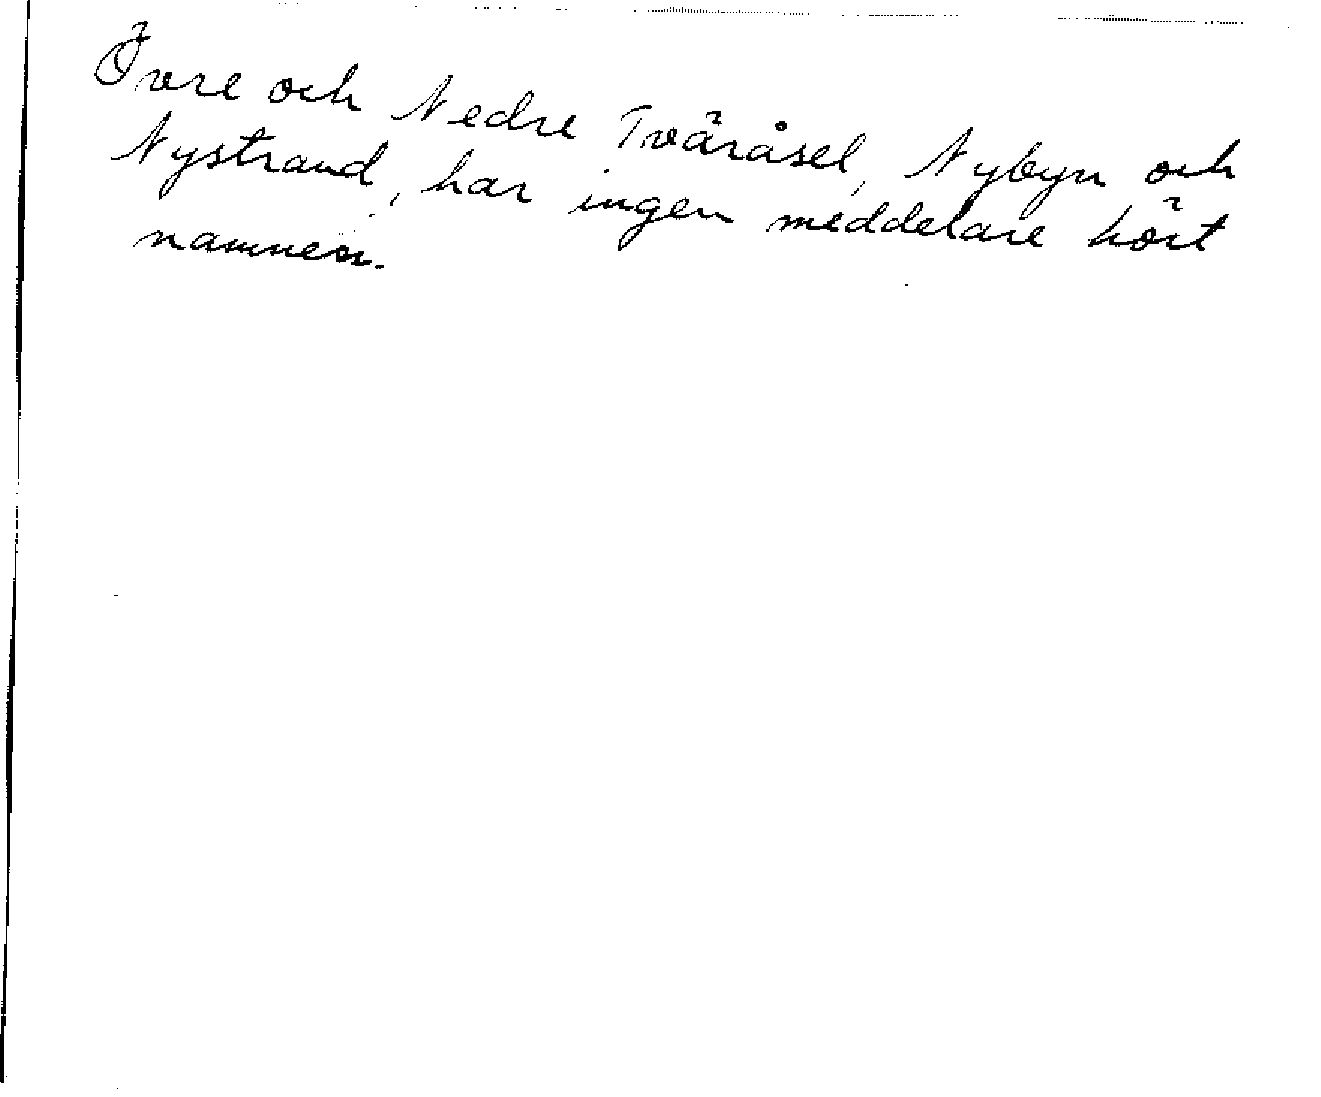 Övre och Nedre Tväråsel, Nybyn och
Nystrand, har ingen meddelare hört
namnen.